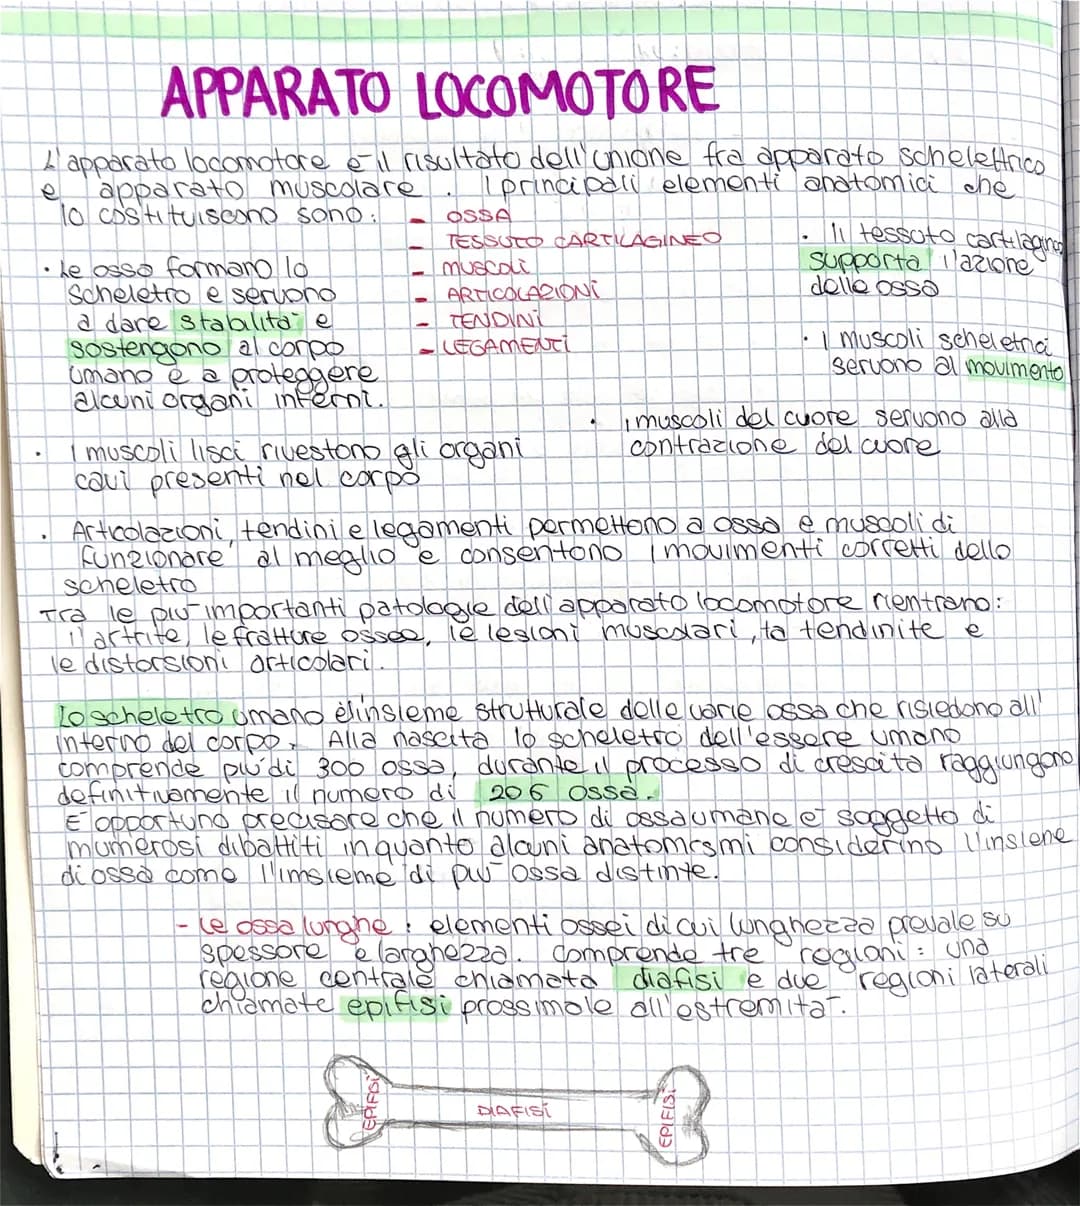 APPARATO LOCOMOTORE
L'apparato locomotore è il risultato dell'unione fra apparato schelettrico
e apparato muscolare. I principali elementi anatomici che
lo costituiscono sono:
- OSSA
- TESSUTO CARTILAGINEO
- MUSCOLI
- ARTICOLAZIONI
- TENDINI
- LEGAMENTI
• Le ossa formano lo
scheletro e servono
a dare stabilità e
sostengono al corpo
umano e a proteggere
alcuni organi interni.
• Il tessuto cartilagineo
supporta l'azione
delle ossa
• I muscoli scheletrici
servono al movimento
• I muscoli del cuore servono alla
contrazione del cuore
• I muscoli lisci rivestono gli organi
cavi presenti nel corpo
• Articolazioni, tendini e legamenti permettono a ossa e muscoli di
funzionare al meglio e consentono i movimenti corretti dello
scheletro
Tra le più importanti patologie dell'apparato locomotore rientrano:
l'artrite, le fratture ossee, le lesioni muscolari, la tendinite e
le distorsioni articolari.
Lo scheletro umano è l'insieme strutturale delle varie ossa che risiedono all'
interno del corpo. Alla nascita lo scheletro dell'essere umano
comprende più di 300 ossa, durante il processo di crescita raggiungono
definitivamente il numero di 206 ossa.
E' opportuno precisare che il numero di ossa umane è soggetto di
mumerosi dibattiti in quanto alcuni anatomismi considerino l'insiene
di ossa come l'imsieme di più ossa distinte.
- Le ossa lunghe: elementi ossei di cui lunghezza prevale su
spessore e larghezza. Comprende tre regioni: una
regione centrale chiamata diafisi e due regioni laterali
chiamate epifisi prossimale all'estremità.
EPIFISI
DIAFISI
EPIFISI